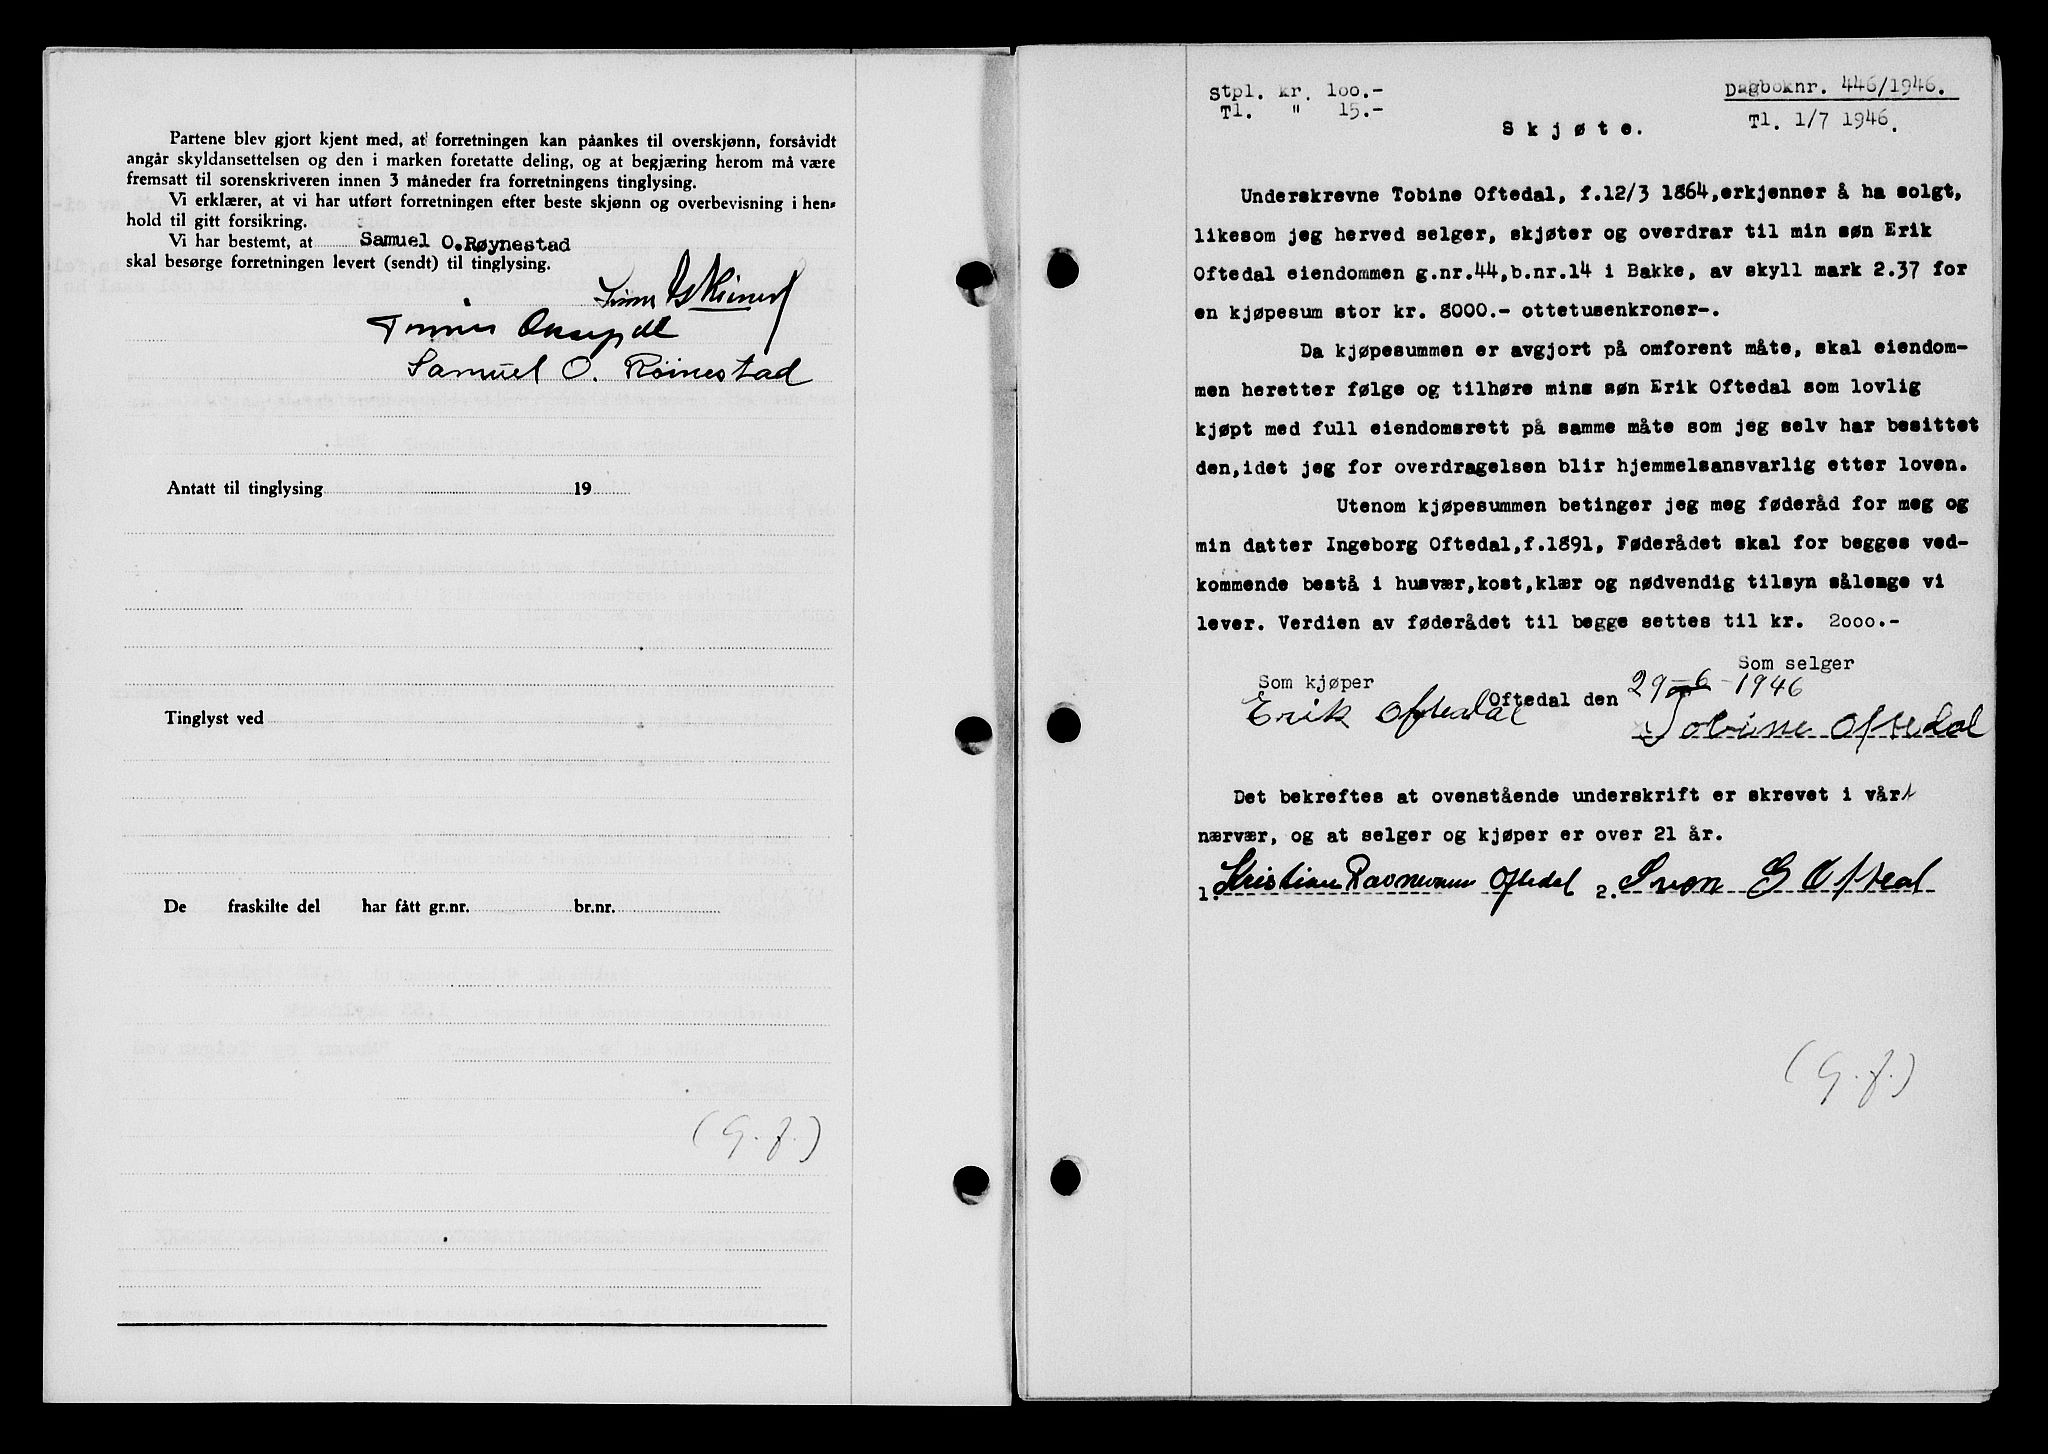 Partene blev gjort kjent med, at forretningen kan påankes til overskjønn, forsåvidt
angår skyldansettelsen og den i marken foretatte deling, og at begjæring herom må være
fremsatt til sorenskriveren innen 3 måneder fra forretningens tinglysing.
Vi erklærer, at vi har utført forretningen efter beste skjønn og overbevisning i hen-
hold til gitt forsikring.
Vi har bestemt, at Samuel O. Røynestad
skal besørge forretningen levert (sendt) til tinglysing.
Samuel O. Röinestad
Antatt til tinglysing 19
Tinglyst ved
De fraskilte del har fått gr.nr. br.nr.
(G. f.)
Stpl. kr. 100.-
Tl. " 15.-
Dagboknr. 446/1946.
Tl. 1/7 1946.
Skjøte.
Underskrevne Tobine Oftedal, f.12/3 1864,erkjenner å ha solgt,
likesom jeg herved selger, skjøter og overdrar til min søn Erik
Oftedal eiendommen g.nr.44,b.nr.14 i Bakke, av skyll mark 2.37 for
en kjøpesum stor kr. 8000.- ottetusenkroner-.
Da kjøpesummen er avgjort på omforent måte, skal eiendom-
men heretter følge og tilhøre mins søn Erik Oftedal som lovlig
kjøpt med full eiendomsrett på samme måte som jeg selv har besittet
den,idet jeg for overdragelsen blir hjemmelsansvarlig etter loven.
Utenom kjøpesummen betinger jeg meg føderåd for meg og
min datter Ingeborg Oftedal,f.1891, Føderådet skal for begges ved-
kommende bestå i husvær,kost,klær og nødvendig tilsyn sålenge vi
lever. Verdien av føderådet til begge settes til kr. 2000.-
Som kjøper Som selger
Oftedal den 29-6-1946
Erik Oftedal Tobine Oftedal
Det bekreftes at ovenstående underskrift er skrevet i vårt
nærvær, og at selger og kjøper er over 21 år.
1. Kristian Oftedal 2. Sven G Oftedal
(G. f.)